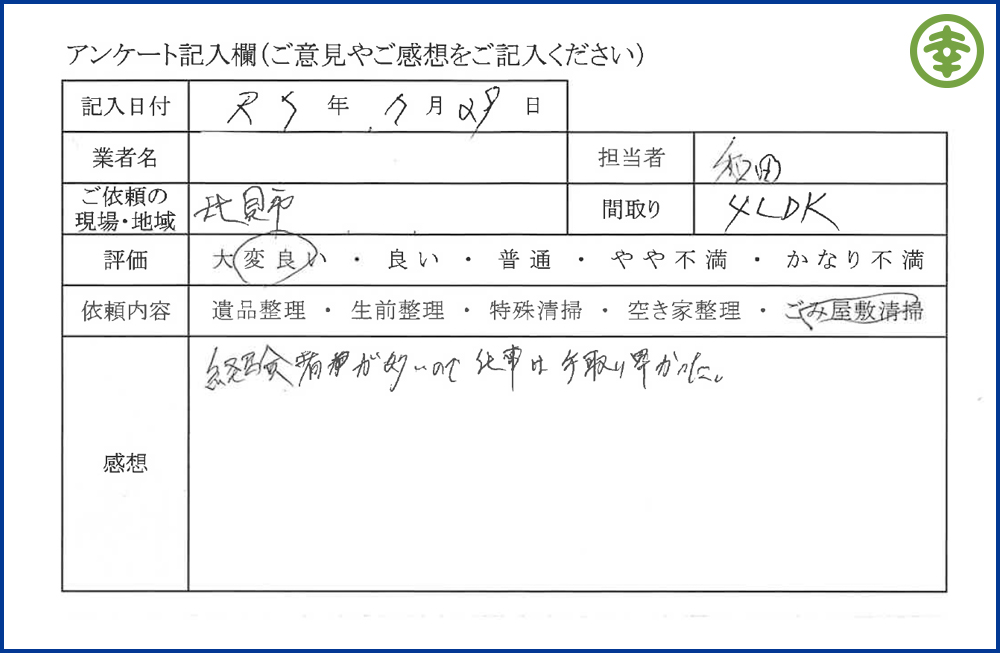 幸
アンケート記入欄(ご意見やご感想をご記入ください)
記入日付 R5年 月28日
業者名 担当者 和田
ご依頼の現場・地域 氷見市 間取り 4LDK
評価 大変良い ・ 良い ・ 普通 ・ やや不満 ・ かなり不満
依頼内容 遺品整理 ・ 生前整理 ・ 特殊清掃 ・ 空き家整理 ・ ごみ屋敷清掃
感想
経験者が多いので仕事は手取り早かった。